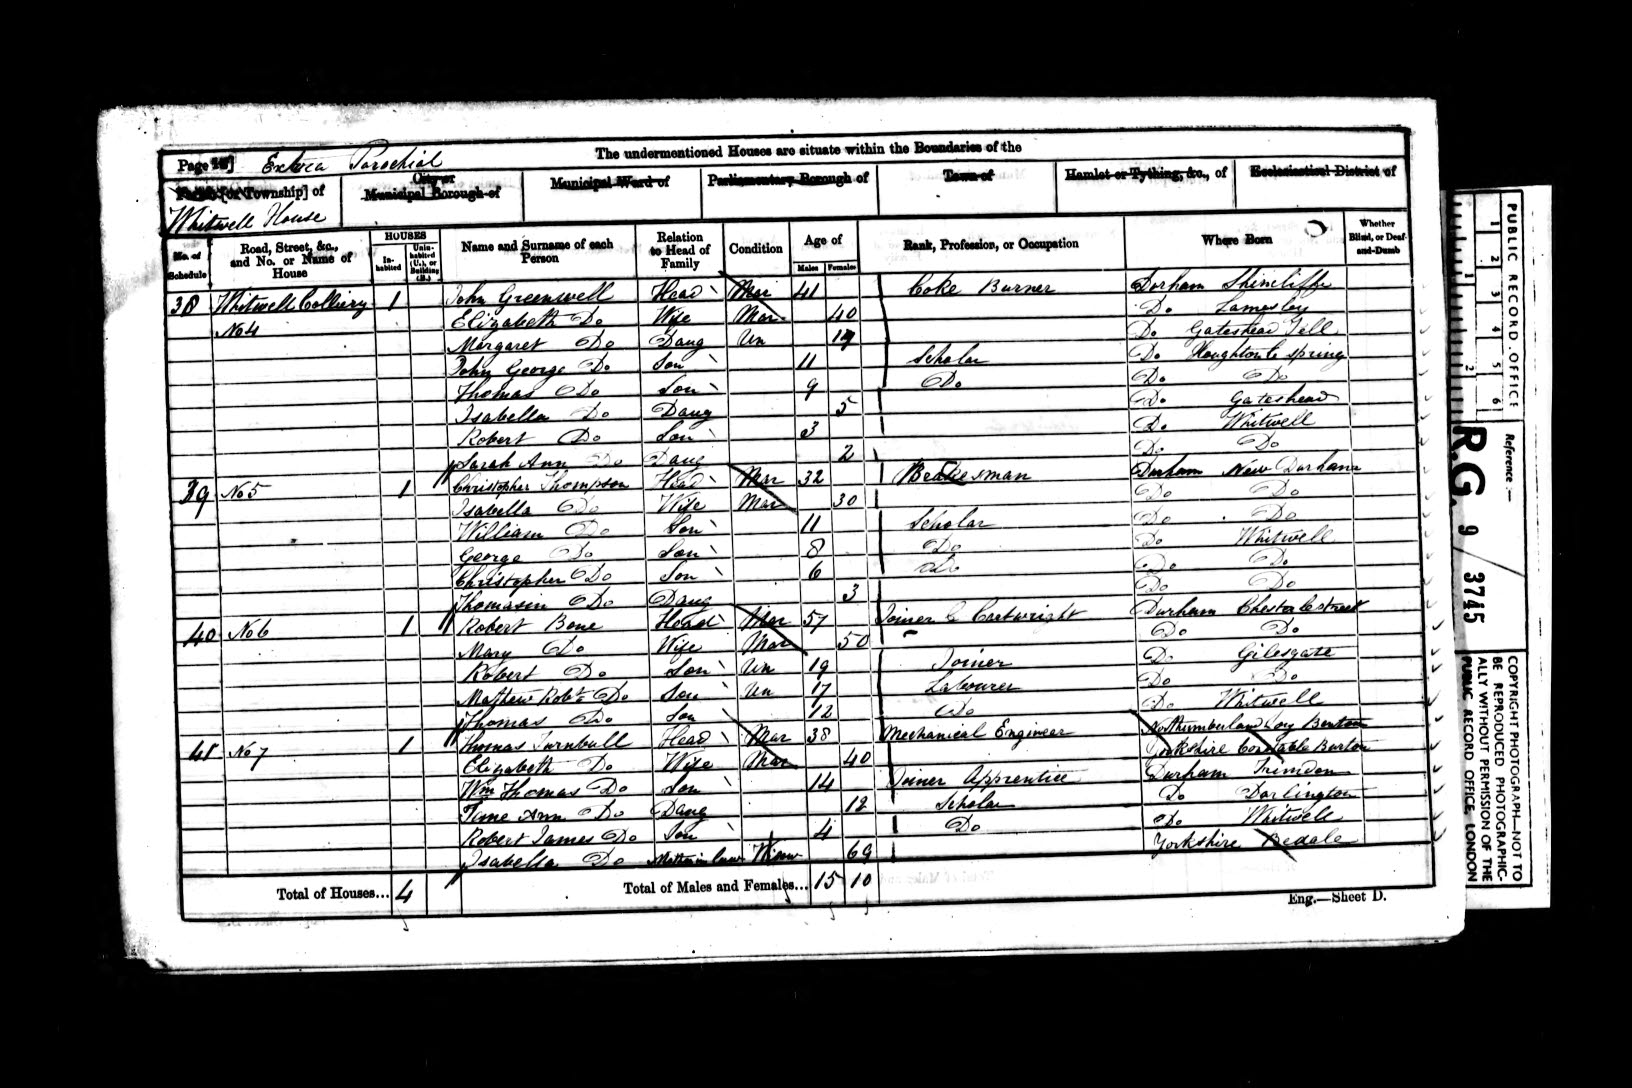 Page Extra Parochial The undermentioned Houses are situate within the Boundaries of the
Parish [or Township] of City or Municipal Borough of Municipal Ward of Parliamentary Borough of Town of Hamlet or Tything, &c., of Ecclesiastical District of
Whitwell House
No. of Schedule Road, Street, &c., and No. or Name of House HOUSES Inhabited Uninhabited (U.), or Building (B.) Name and Surname of each Person Relation to Head of Family Condition Age of Males Females Rank, Profession, or Occupation Where Born Whether Blind, or Deaf-and-Dumb
38 Whitwell Colliery 1 John Greenwell Head Mar 41 Coke Burner Durham Shincliffe
No 4 Elizabeth Do Wife Mar 40 Do Lamesley
Margaret Do Daug Un Do Gateshead Fell
John George Do Son 11 Scholar Do Houghton le Spring
Thomas Do Son 9 Do Do Do
Isabella Do Daug 5 Do Gateshead
Robert Do Son 3 Do Whitwell
Sarah Ann Do Daug 2 Do Do
39 No 5 1 Christopher Thompson Head Mar 32 Brakesman Durham New Durham
Isabella Do Wife Mar 30 Do Do
William Do Son 11 Scholar Do Do
George Do Son 8 Do Do Whitwell
Christopher Do Son 6 Do Do Do
Thomasin Do Daug 3 Do Do
40 No 6 1 Robert Bone Head Mar 57 Joiner & Cartwright Durham Chester le street
Mary Do Wife Mar 50 Do Do
Robert Do Son Un 19 Joiner Do Gilesgate
Mathew Robt Do Son Un 17 Labourer Do Do
Thomas Do Son 12 Do Do Whitwell
41 No 7 1 Thomas Turnbull Head Mar 38 Mechanical Engineer Northumberland Benton
Elizabeth Do Wife Mar 40 Yorkshire Constable Burton
Wm Thomas Do Son 14 Joiner Apprentice Durham Trimdon
Ann Do Daug 12 Scholar Do Darlington
Robert James Do Son 4 Do Do Whitwell
Isabella Do Mother in law Widow 69 Yorkshire Bedale
Total of Houses... 4 Total of Males and Females... 15 10
Eng.—Sheet D.
PUBLIC RECORD OFFICE
1 2 3 4 5 6
1 2
Reference:—
R.G. 9 / 3745
COPYRIGHT PHOTOGRAPH—NOT TO
BE REPRODUCED PHOTOGRAPHIC-
ALLY WITHOUT PERMISSION OF THE
PUBLIC RECORD OFFICE, LONDON